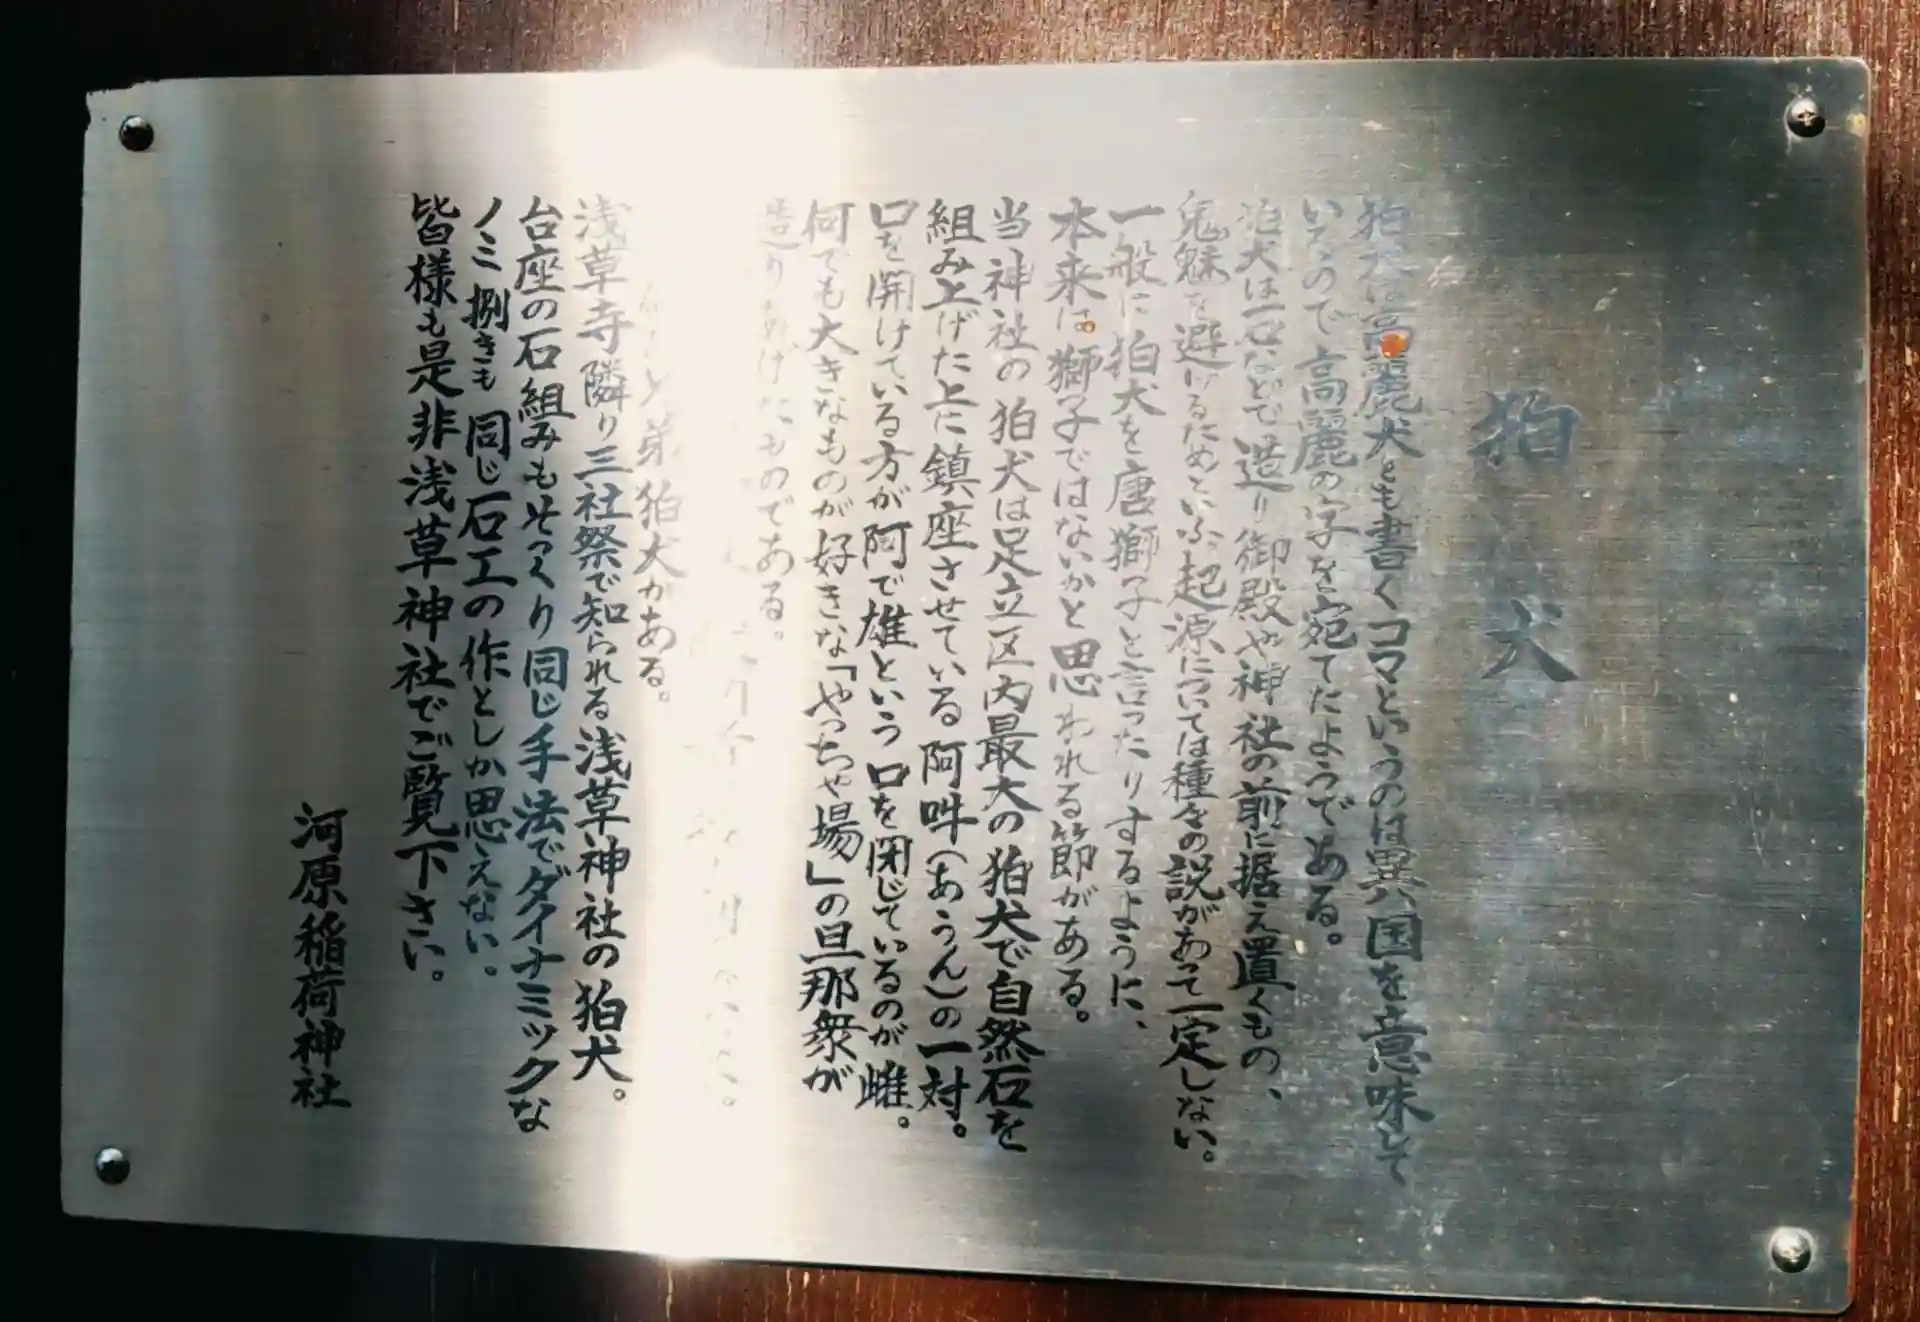 狛犬
狛犬は高麗犬とも書くコマというのは異国を意味して
いるので高麗の字を宛てたようである。
狛犬は石などで造り御殿や神社の前に据え置くもの、
鬼魅を避けるためといふ起源については種々の説があって一定しない。
一般に狛犬を唐獅子と言ったりするように、
本来は獅子ではないかと思われる節がある。
当神社の狛犬は足立区内最大の狛犬で自然石を
組み上げた上に鎮座させている阿吽(あうん)の一対。
口を開けている方が阿で雄という口を閉じているのが雌。
何でも大きなものが好きな「やっちゃ場」の旦那衆が
造りあげたものである。
兄弟狛犬がある。
浅草寺隣り三社祭で知られる浅草神社の狛犬。
台座の石組みもそっくり同じ手法でダイナミックな
ノミ捌きも同じ石工の作としか思えない。
皆様も是非浅草神社でご覧下さい。
河原稲荷神社